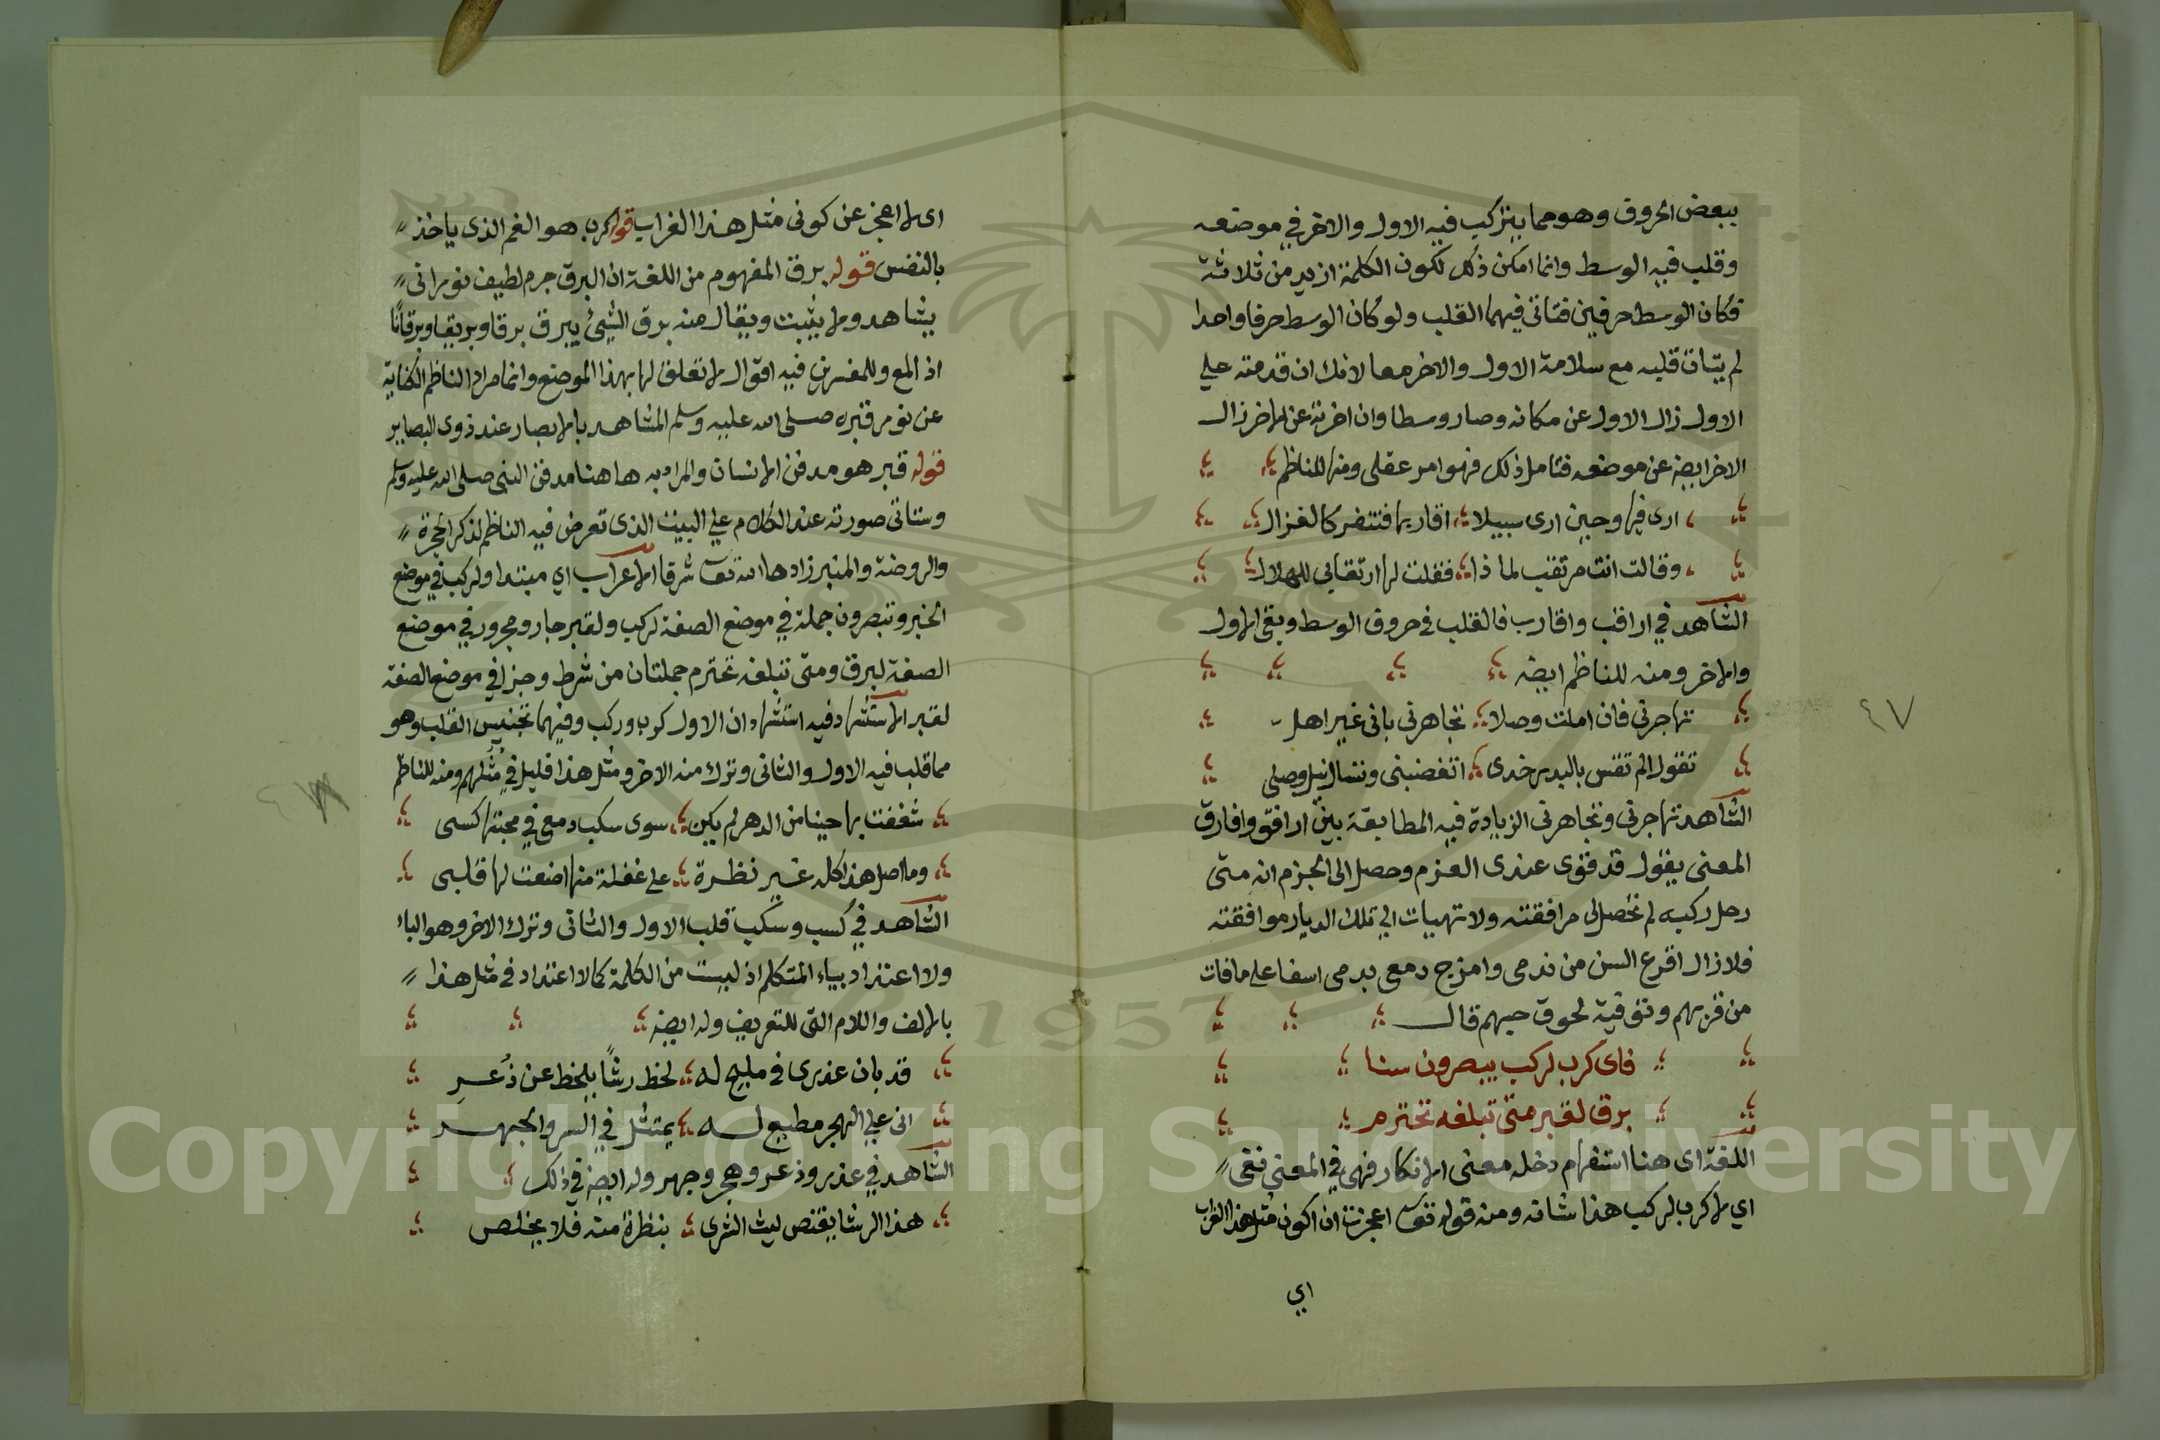 ببعض الحروف وهو مما يتركب فيه الاول والاخر في موضعه
وقلب فيه الوسط وانما امكن ذلك لكون الكلمة ازيد من ثلاثة
فكان الوسط حرفين فتاتى فيهما القلب ولو كان الوسط حرفا واحدا
لم يتات قلبه مع سلامة الاول والاخر معا لانك ان قدمته علي
الاول زال الاول عن مكانه وصار وسطا وان اخرته عن الاخر زال
الاخر ايضا عن موضعه فتامل ذلك فهو امر عقلى ومنه للناظم
ارى فيها وحين ارى سبيلا اقاربها فتنفر كالغزال
وقالت انت مرتقب لماذا فقلت لها ارتقابي للهلال
الشاهد في اراقب واقارب فالقلب في حروف الوسط وبقى الاول
والاخر ومنه للناظم ايضا
تهاجرنى فان املت وصلا تجاهرنى بانى غير اهل
تقول الم تقس بالبدر خدى اتغضبنى وتسال نيل وصلى
الشاهد تهاجرنى وتجاهرنى الزيادة فيه المطابقة بين ارافق وافارق
المعنى يقول قد قوى عندى العزم وحصل لى الجزم انه متى
رحل ركبه لم تحصل لى مرافقته ولا تهيات الي تلك الديار موافقته
فلا زال اقرع السن من ندمى وامزج دمعى بدمى اسفا على مافات
من قربهم وتوقية لحوق حبهم قال
فاى كرب لركب يبصرون سنا
برق لقبر متى تبلغه تحترم
اللغة اى هنا استفهام دخله معنى الانكار فهى في المعنى نفى
اي لا كرب لركب هذا شانه ومنه قوله تعالى اعجزت ان اكون مثل هذا الغراب
اي
٤٧
اى لا اعجز عن كونى مثل هذا الغراب قوله كرب هو الغم الذى ياخذ
بالنفس قوله برق المفهوم من اللغة ان البرق جرم لطيف نورانى
يشاهد ولا يثبت ويقال منه برق الشيئ يبرق برقا وبريقا وبرقانا
اذ المع وللمفسرين فيه اقوال لا تعلق لها بهذا الموضع وانما مراد الناظم الكناية
عن نور قبره صلى الله عليه وسلم المشاهد بالابصار عند ذوى البصاير
قوله قبر هو مدفن الانسان والمراد به هاهنا مدفن النبى صلى الله عليه وسلم
وستاتى صورته عند الكلام علي البيت الذى تعرض فيه الناظم لذكر الحجرة
والروضة والمنبر زادها الله تعالى شرفا الاعراب اي مبتدا ولركب في موضع
الخبر وتبصرون جملة في موضع الصفة لركب ولقبر جار ومجرور في موضع
الصفة لبرق ومتى تبلغه تحترم جملتان من شرط وجزا في موضع الصفة
لقبر الاستشهاد فيه استشهاد ان الاول كرب وركب وفيهما تجنيس القلب وهو
مما قلب فيه الاول والثانى وترك منه الاخر ومثل هذا قليل في مثلهم ومنه للناظم
شغفت بها حينا من الدهر لم يكن سوى سكب دمعى في محبتها كسبى
وما اصل هذا كله غير نظرة على غفلة منها اضعت لها قلبى
الشاهد في كسب وسكب قلب الاول والثانى وترك الاخر وهو الباء
ولا اعتداد بياء المتكلم اذ ليست من الكلمة كما لا اعتداد في مثل هذا
بالالف واللام التى للتعريف وله ايضا
قد بان عذرى في مليح له لحظ رشا يلحظ عن ذعر
انى علي الهجر مطيع له يمتثل في السر والجهر
الشاهد في عذر وذعر وهجر وجهر وله ايضا في ذلك
هذا الرشا يقتص ليث الشرى بنظرة منه فلا يخلص
Copyright © King Saud University
1957